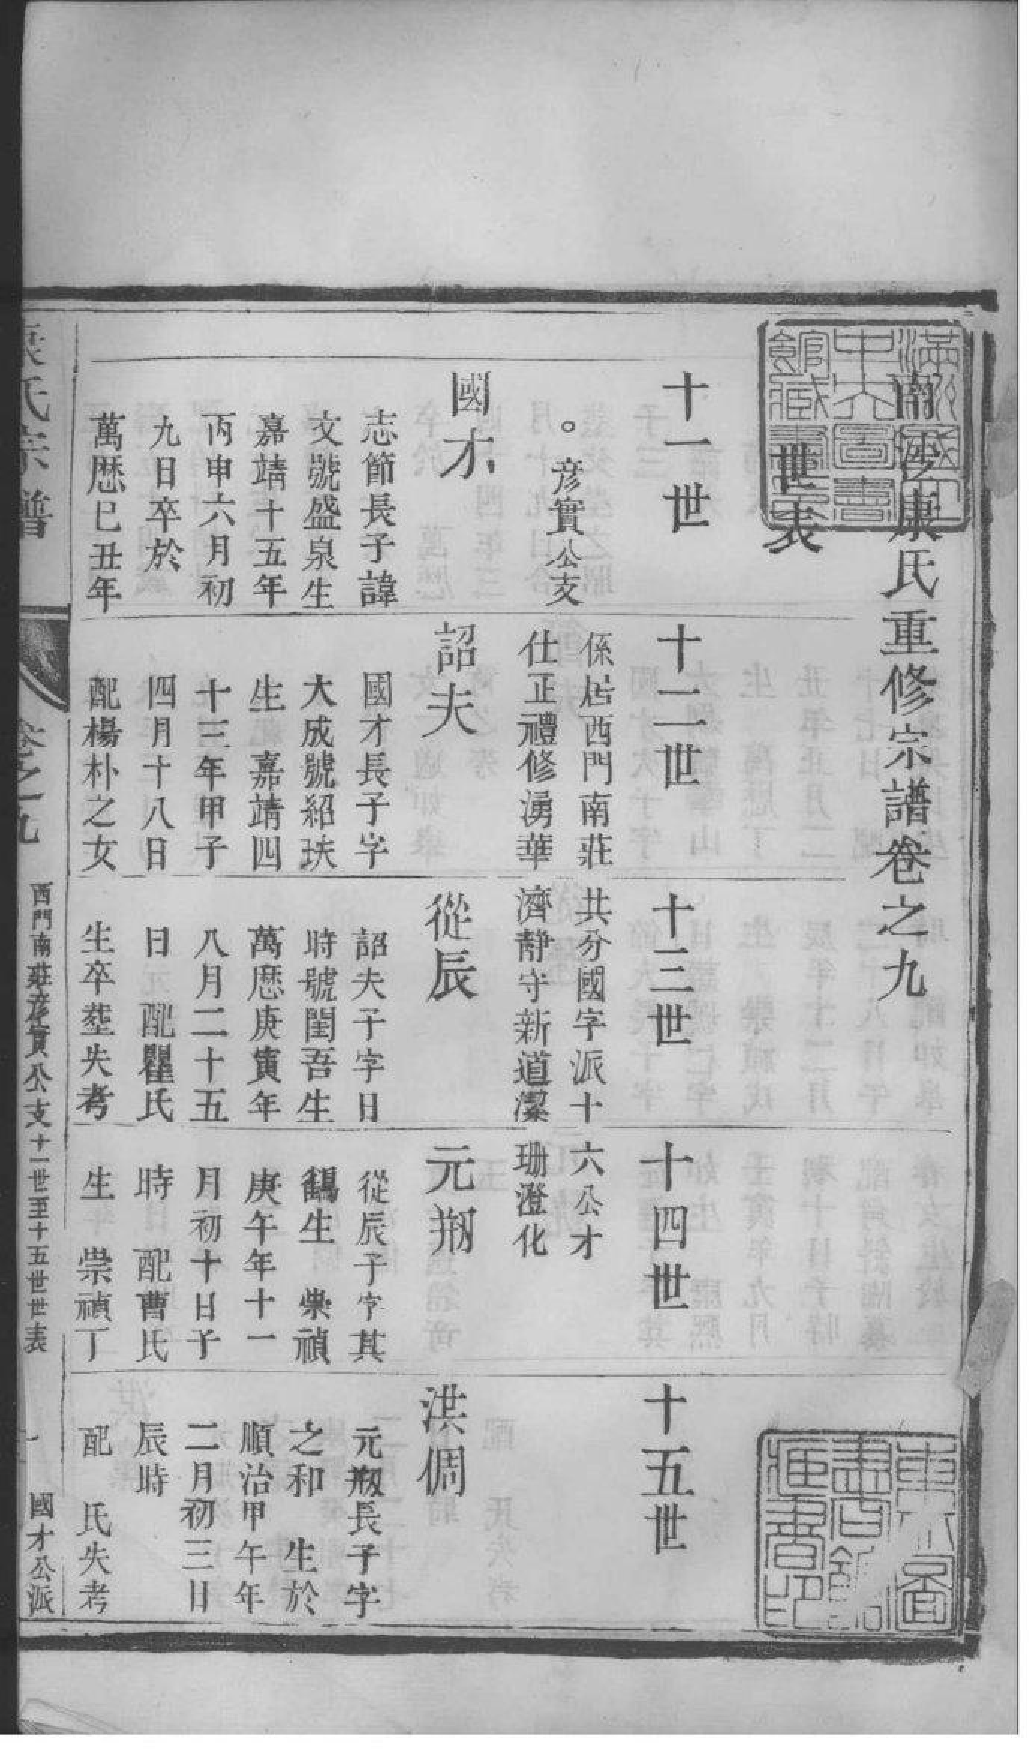 南沙康氏重修宗譜卷之九
世表
十一世
十二世
十三世
十四世
十五世
。彥實公支
係居西門南莊
共分國字派十
六公才
仕正禮修湧華
濟靜守新道潔
珊澄化
國才
志節長子諱
文號盛泉生
嘉靖十五年
丙申六月初
九日卒於
萬歷巳丑年
詔夫
國才長子字
大成號紹玞
生 嘉靖四
十三年甲子
四月十八日
配楊朴之女
從辰
詔夫子字日
時號閏吾生
萬歷庚寅年
八月二十五
日 配瞿氏
生卒塟失考
元㓮
從辰子字其
鶴生 崇禎
庚午年十一
月初十日子
時 配曹氏
生 崇禎丁
洪倜
元㓮長子字
之和 生於
順治甲午年
二月初三日
辰時
配 氏失考
康氏宗譜
卷之九
西門南莊彥實公支十一世至十五世世表
一
國才公派